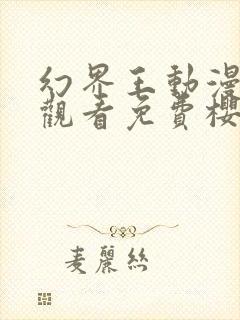 幻界王動漫
觀看免費櫻
麦麗絲